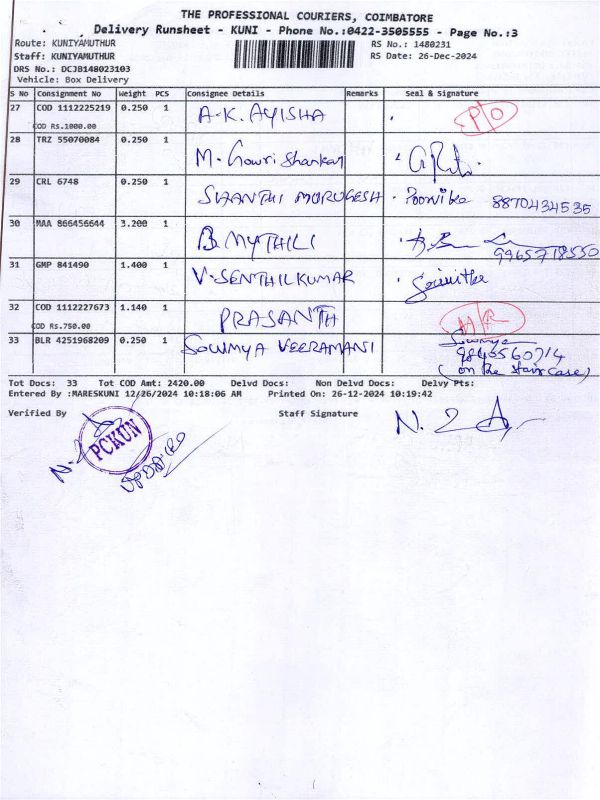 THE PROFESSIONAL COURIERS, COIMBATORE
Delivery Runsheet - KUNI - Phone No.:0422-3505555 - Page No.:3
Route: KUNIYAMUTHUR RS No.: 1480231
Staff: KUNIYAMUTHUR RS Date: 26-Dec-2024
DRS No.: DCJB148023103
Vehicle: Box Delivery
S No Consignment No Weight PCS Consignee Details Remarks Seal & Signature
27 COD 1112225219 0.250 1 A.K. AYISHA P/O
COD Rs.1000.00
28 TRZ 55070084 0.250 1 M. Gowri Shankar
29 CRL 6748 0.250 1 SHANTHI MURUGESH Poornika 8870434535
30 MAA 866456644 3.200 1 B. MYTHILI 9965718550
31 GMP 841490 1.400 1 V. SENTHILKUMAR
32 COD 1112227673 1.140 1 PRASANTH
COD Rs.750.00
33 BLR 4251968209 0.250 1 SOWMYA VEERAMANI Sowmya
9840560714
(on the staircase)
Tot Docs: 33 Tot COD Amt: 2420.00 Delvd Docs: Non Delvd Docs: Delvy Pts:
Entered By :MARESKUNI 12/26/2024 10:18:06 AM Printed On: 26-12-2024 10:19:42
Verified By Staff Signature
PCKUN